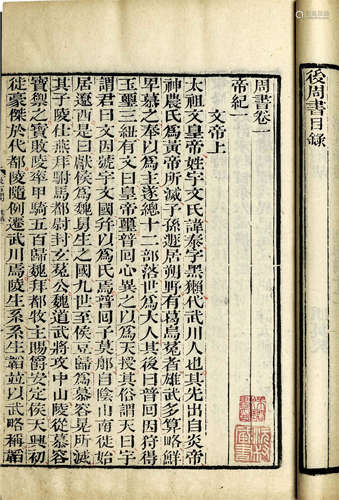 後周書目錄
周書卷一
帝紀一
文帝上
太祖文皇帝姓宇文氏諱泰字黑獺代武川人也其先出自炎帝
神農氏爲黃帝所滅子孫遯居朔野有葛烏菟者雄武多算略鮮
卑慕之奉以爲主遂總十二部落世爲大人其後曰普回因狩得
玉璽三紐有文曰皇帝璽普回心異之以爲天授其俗謂天曰宇
謂君曰文因號宇文國幷以爲氏焉普回子莫那自陰山南徙始
居遼西是曰獻侯爲魏舅生之國九世至侯豆歸爲慕容晃所滅
其子陵仕燕拜駙馬都尉封玄菟公魏道武將攻中山陵從慕容
寶禦之寶敗陵率甲騎五百歸魏拜都牧主賜爵安定侯天興初
徙豪傑於代都陵隨例遷武川焉陵生系系生韜並以武略稱韜